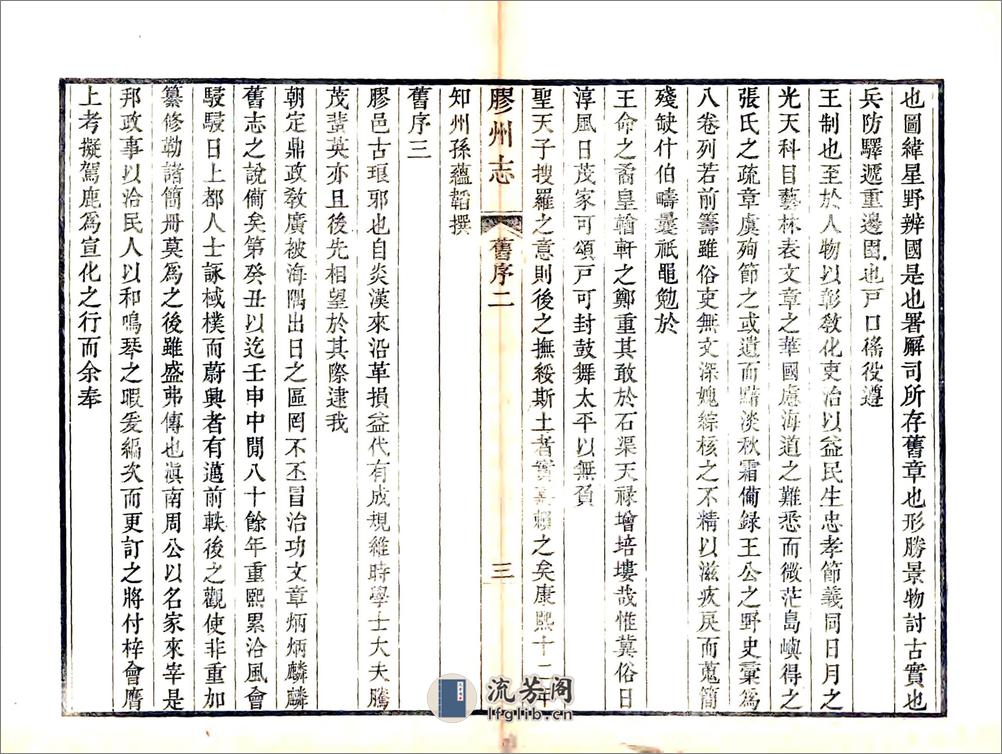 也圖緯星野辨國是也署廨司所存舊章也形勝景物討古實也
兵防驛遞重邊圉也戸口徭役遵
王制也至於人物以彰敎化吏治以益民生忠孝節義同日月之
光天科目藝林表文章之華國慮海道之難悉而微茫島嶼得之
張氏之疏章虞殉節之或遺而黯淡秋霜備録王公之野史彙爲
八卷列若前籌雖俗吏無文深媿綜核之不精以滋疚戾而蒐簡
殘缺什伯疇曩祇黽勉於
王命之裔皇輶軒之鄭重其敢於石渠天禄增培塿哉惟冀俗日
淳風日茂家可頌戸可封鼓舞太平以無負
聖天子搜羅之意則後之撫綏斯土者實嘉賴之矣康熙十二年
知州孫蘊韜撰
膠州志
舊序二
三
舊序三
膠邑古琅邪也自炎漢來沿革損益代有成規維時學士大夫騰
茂蜚英亦且後先相望於其際逮我
朝定鼎政敎廣被海隅出日之區罔不丕冒治功文章炳炳麟麟
舊志之說備矣第癸丑以迄壬申中閒八十餘年重熙累洽風會
駸駸日上都人士詠棫樸而蔚興者有邁前軼後之觀使非重加
纂修勒諸簡冊莫爲之後雖盛弗傳也滇南周公以名家來宰是
邦政事以洽民人以和鳴琴之暇爰編次而更訂之將付梓會膺
上考擬駕鹿爲宣化之行而余奉
流芳阁
lfglib.cn